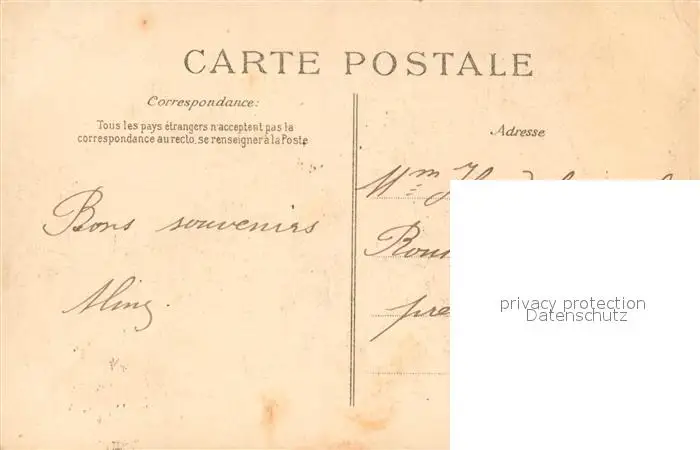 CARTE POSTALE
Correspondance:
Tous les pays étrangers n'acceptent pas la
correspondance au recto, se renseigner à la Poste
Bons souvenirs
Aline.
Adresse
Mm
privacy protection
Datenschutz